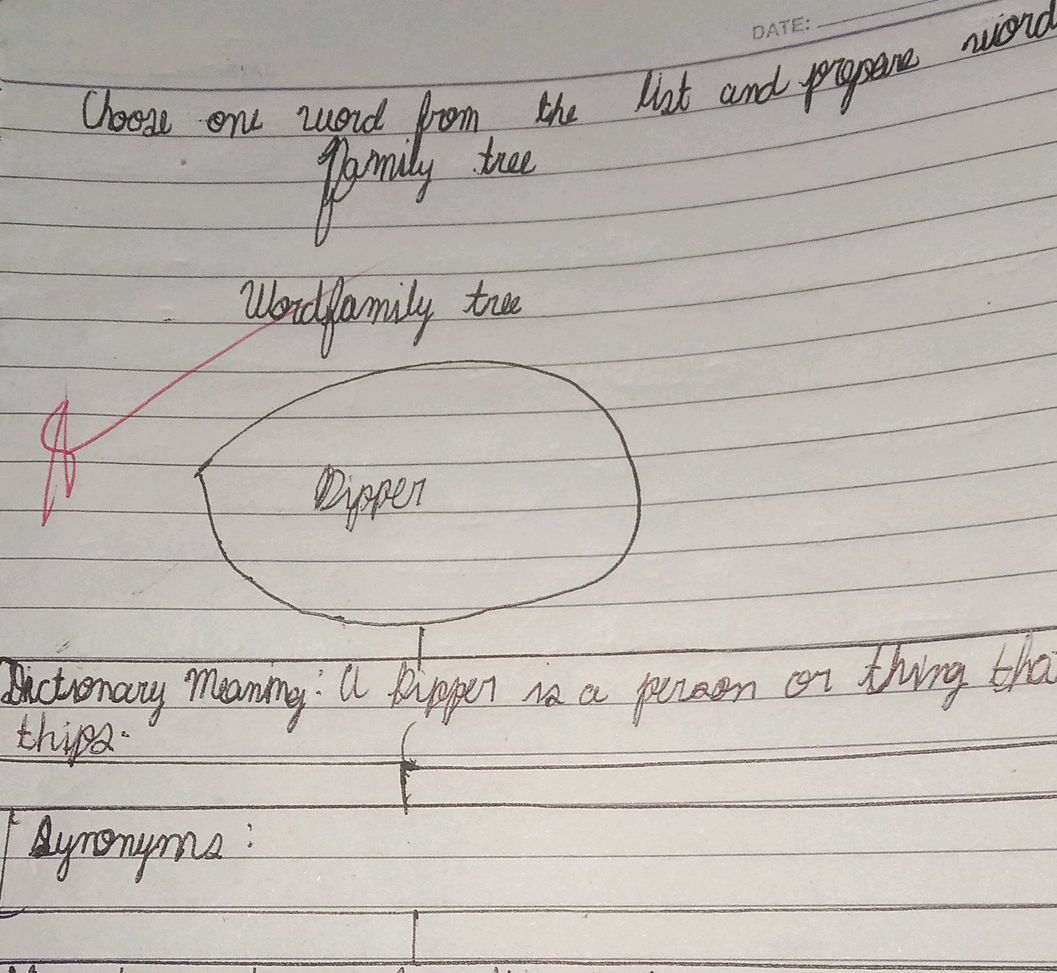 DATE:
Choose one word from the list and prepare word
family tree
Wordfamily tree
Dipper
Dictionary Meaning: A Dipper is a person or thing tha
thips.
Synonyms: